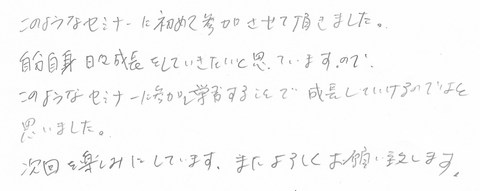 このようなセミナーに初めて参加させて頂きました。
自分自身日々成長をしていきたいと思っていますので、
このようなセミナーに参加し学習することで成長していけるのではと
思いました。
次回を楽しみにしています。またよろしくお願い致します。